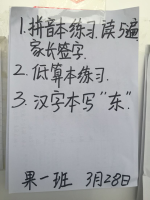 1.拼音本练习.读5遍
家长签字.
2.低算本练习.
3.汉字本写“东”.
果一班 3月28日